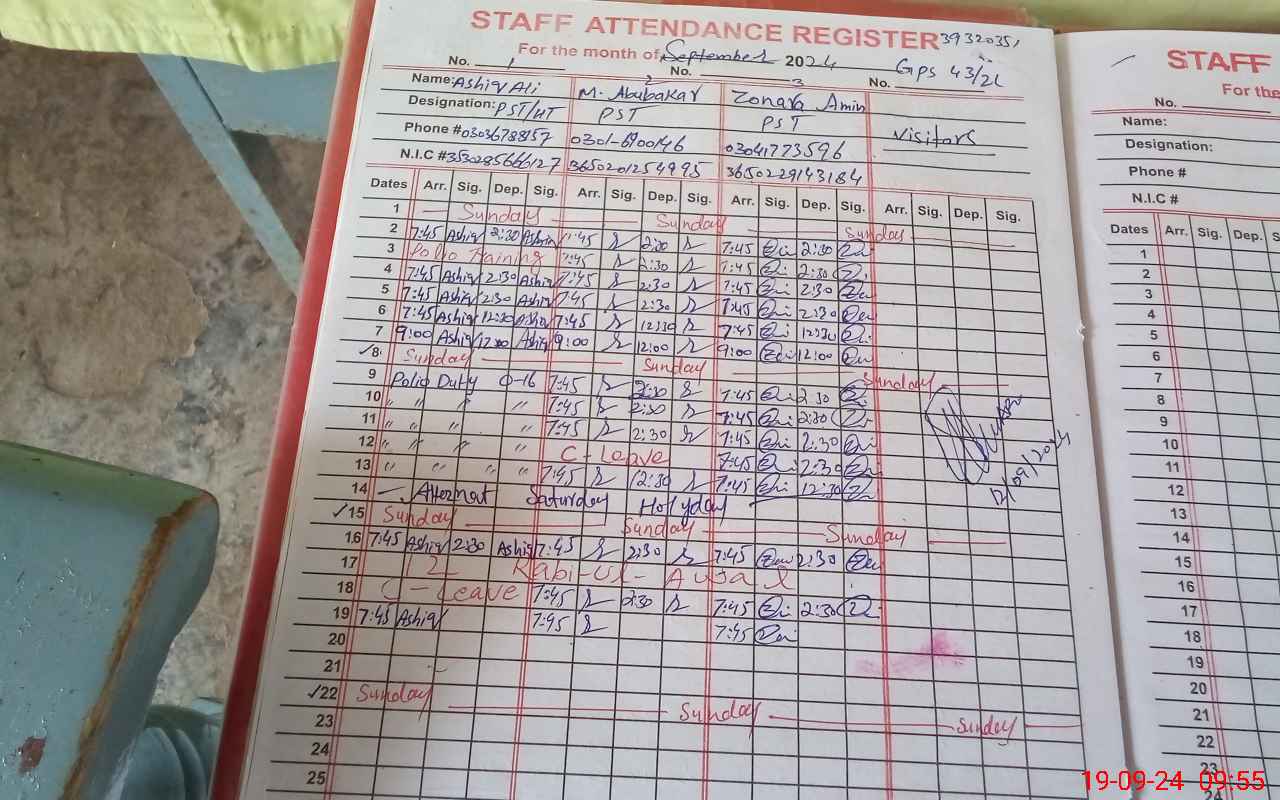 STAFF ATTENDANCE REGISTER 39320351
For the month of September 2024 GPS 43/2L
No. 1 No. 2 3 No.
Name: Ashiq Ali M. Abubakar Zonara Amin
Designation: PST/HT PST PST Visitors
Phone # 03036788157 0301-6900146 03041773596
N.I.C # 353028566127 3650201254995 3650229143184
Dates Arr. Sig. Dep. Sig. Arr. Sig. Dep. Sig. Arr. Sig. Dep. Sig. Arr. Sig. Dep. Sig.
1 Sunday Sunday Sunday
2 7:45 Ashiq 2:30 Ashiq 7:45 2:30 7:45 2:30
3 Polio Training 7:45 2:30 7:45 2:30
4 7:45 Ashiq 2:30 Ashiq 7:45 2:30 7:45 2:30
5 7:45 Ashiq 2:30 Ashiq 7:45 2:30 7:45 2:30
6 7:45 Ashiq 12:30 Ashiq 7:45 12:30 7:45 12:30
7 9:00 Ashiq 12:00 Ashiq 9:00 12:00 9:00 12:00
✓8 Sunday Sunday Sunday
9 Polio Duty 0-16 7:45 2:30 7:45 2:30
10 " " " " 7:45 2:30 7:45 2:30
11 " " " " 7:45 2:30 7:45 2:30
12 " " " " C-Leave 7:45 2:30
13 " " " " 7:45 12:30 7:45 12:30
12/09/2024
14 — Alternat Saturday Hollyday
✓15 Sunday Sunday Sunday
16 7:45 Ashiq 2:30 Ashiq 7:45 2:30 7:45 2:30
17 12 Rabi-Ul-Awal
18 C-Leave 7:45 2:30 7:45 2:30
19 7:45 Ashiq 7:45 7:45
20
21
✓22 Sunday Sunday Sunday
23
24
25
STAFF
For the
No.
Name:
Designation:
Phone #
N.I.C #
Dates Arr. Sig. Dep. S
1
2
3
4
5
6
7
8
9
10
11
12
13
14
15
16
17
18
19
20
21
22
23
24
19-09-24 09:55